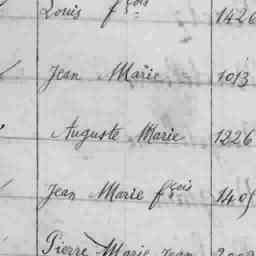 Louis fçois 1426
Jean Marie 1013
Auguste Marie 1226
Jean Marie fçois 1405
Pierre Marie Jean